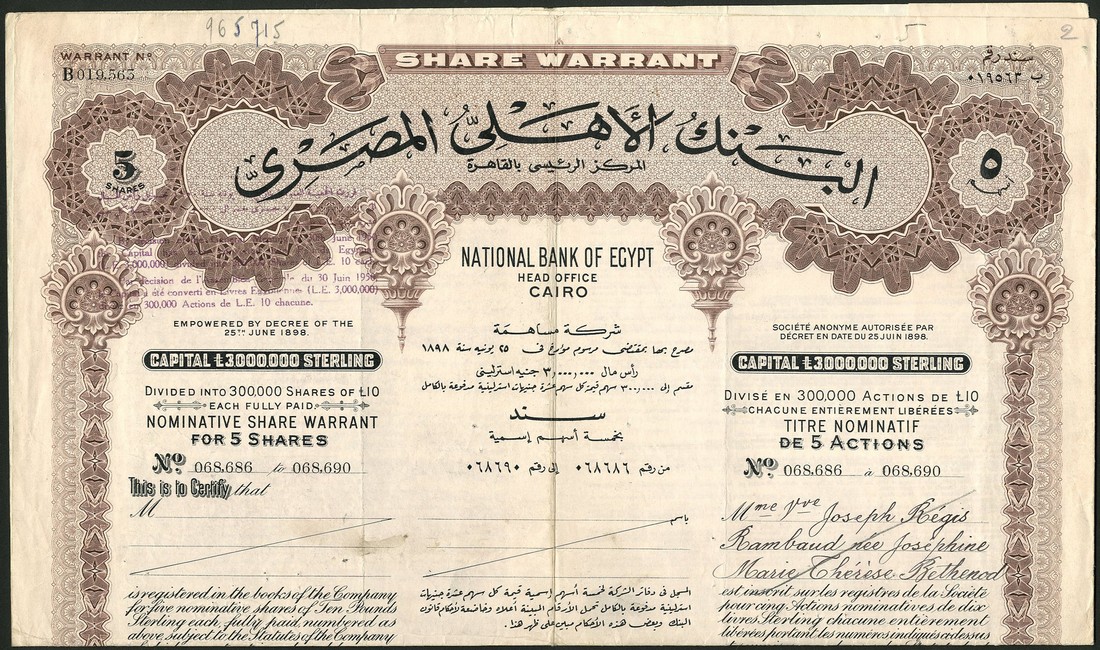 965715
5
2
WARRANT Nº
B 019.563
SHARE WARRANT
سند رقم
ب ٠١٩٥٦٣
البنك الأهلى المصرى
المركز الرئيسى بالقاهرة
5
SHARES
٥
NATIONAL BANK OF EGYPT
HEAD OFFICE
CAIRO
June
Capital Egyptian
L.E. 10 each
décision de l' du 30 Juin 1950
a été converti en Livres Egyptiennes (L.E. 3,000,000)
300,000 Actions de L.E. 10 chacune.
EMPOWERED BY DECREE OF THE
25TH JUNE 1898.
CAPITAL £3.000.000 STERLING
DIVIDED INTO 300,000 SHARES OF £10
EACH FULLY PAID.
NOMINATIVE SHARE WARRANT
FOR 5 SHARES
Nº 068.686 to 068.690
This is to Certify that
M
is registered in the books of the Company
for five nominative shares of Ten Pounds
Sterling each, fully paid, numbered as
above, subject to the Statutes of the Company
شركة مساهمة
مصرح بها بمقتضى مرسوم مؤرخ فى ٢٥ يونيه سنة ١٨٩٨
رأس مال ٣,٠٠٠,٠٠٠ جنيه استرلينى
مقسم إلى ٣٠٠,٠٠٠ سهم قيمة كل سهم عشرة جنيهات استرلينية مدفوعة بالكامل
سند
بخمسة أسهم إسمية
من رقم ٠٦٨٦٨٦ إلى رقم ٠٦٨٦٩٠
باسم
المسجل فى دفاتر الشركة لخمسة أسهم إسمية قيمة كل سهم عشرة جنيهات
استرلينية مدفوعة بالكامل تحمل الأرقام المبينة أعلاه وخاضعة لأحكام قانون
البنك وبعض هذه الأحكام مبين على ظهر هذا.
SOCIÉTÉ ANONYME AUTORISÉE PAR
DÉCRET EN DATE DU 25 JUIN 1898.
CAPITAL £3.000.000 STERLING
DIVISÉ EN 300,000 ACTIONS DE £10
CHACUNE ENTIÈREMENT LIBÉRÉES
TITRE NOMINATIF
DE 5 ACTIONS
Nº 068.686 à 068.690
Mme Vve Joseph Régis
Rambaud née Joséphine
Marie Thérèse Bethenod
est inscrit sur les registres de la Société
pour cinq Actions nominatives de dix
livres Sterling chacune entièrement
libérées portant les numéros indiqués ci-dessus